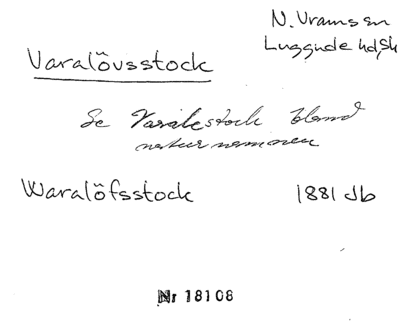 N. Vrams sn
Luggude hd, Sk
Varalövsstock
Se Varalestock bland
naturnamnen
Waralöfsstock 1881 Jb
Nr 18108